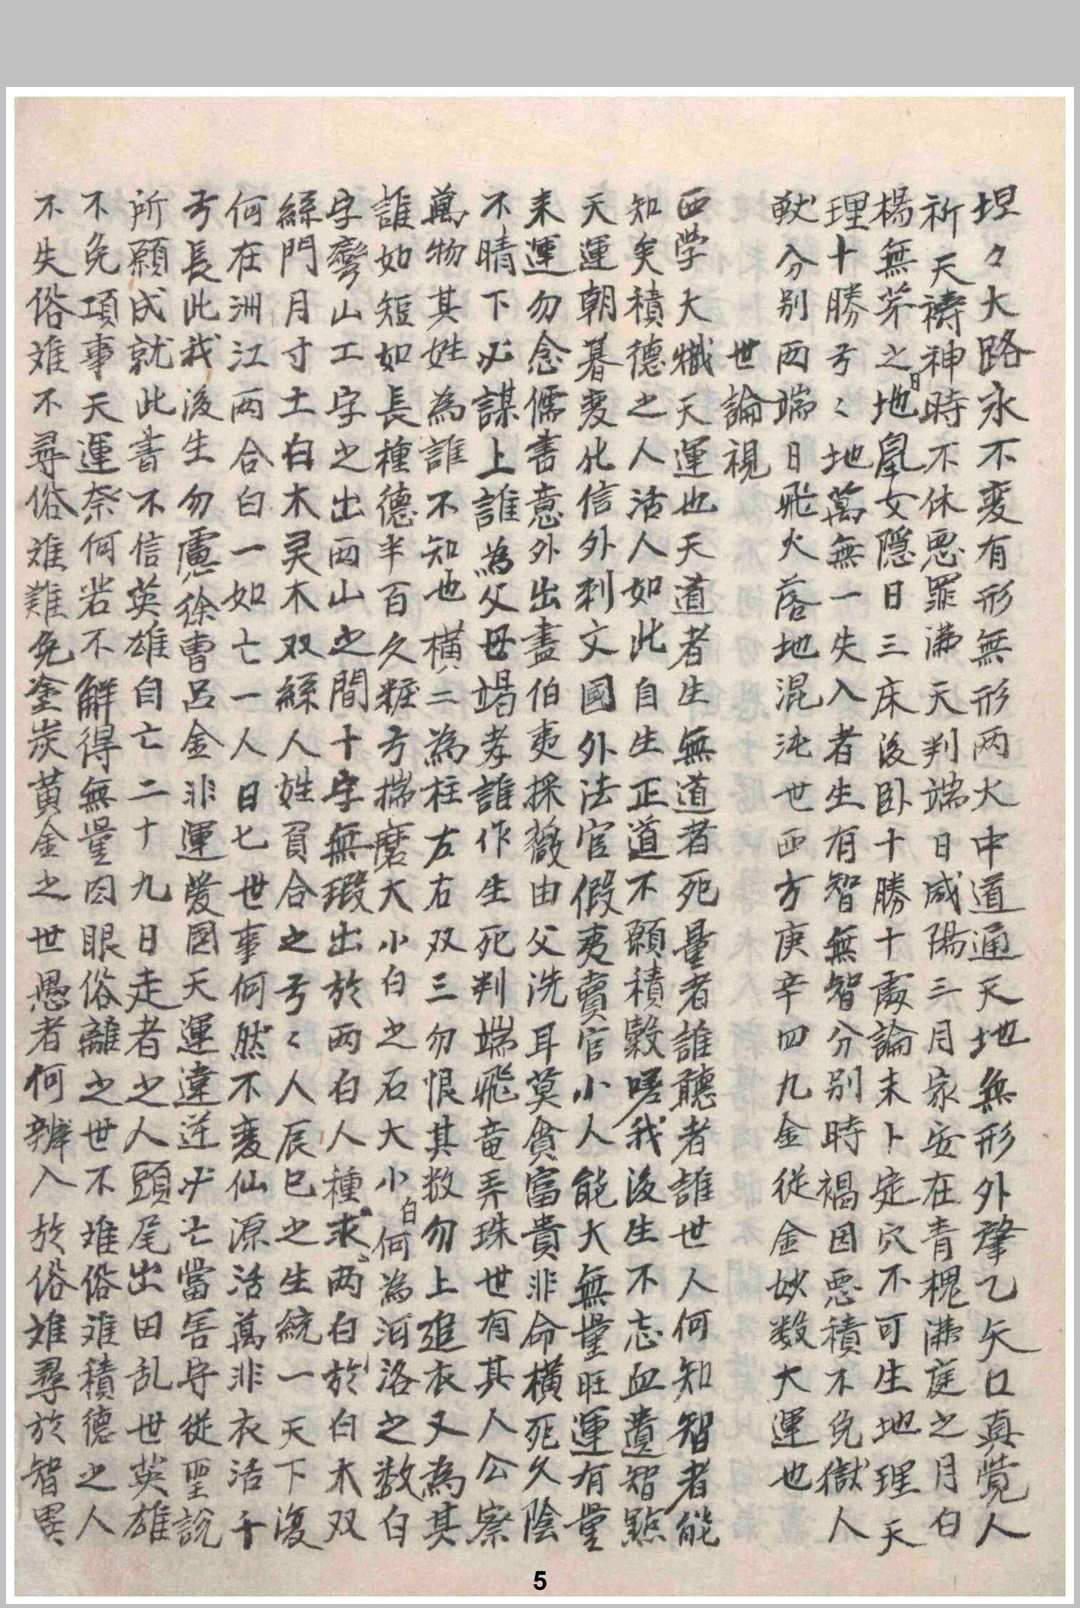 坦々大路永不变有形無形两大中道通天地無形外肇乙矢口真覚人
祈天禱神時不休悪罪満天判端日咸陽三月家安在青槐满庭之月白
楊無芽之地日鼠女隠日三床後卧十勝十處論末卜定穴不可生地理天
理十勝弓〻地萬無一失入者生有智無智分别時禍因悪積不免獄人
獣分别两端日飛火落地混沌世西方庚辛四九金従金妙数大運也
世論視
西学大熾天運也天道者生無道者死量者誰聽者誰世人何知智者能
知矣積德之人活人如此自生正道不願積穀嗟我後生不忘血遺智點
天運朝暮变化信外刺文國外法官假夷賣官小人能大無量旺運有量
来運勿念儒書意外出盡伯夷採薇由父洗耳莫貪富貴非命横死久陰
不晴下必謀上誰為父母竭孝誰作生死判端飛竜弄珠世有其人公察
萬物其姓為誰不知也横二為柱左右双三勿恨其数勿上追衣又為其
誰如短如長種德半百久粧方揣磨大小白之石大小白何為河洛之数白
字彎山工字之出两山之間十字無瑕出於两白人種求两白於白木双
絲門月寸土白木灵木双絲人姓負合之弓〻人辰巳之生統一天下復
何在洲江两合白一如亡一人日七世事何然不变仙源活萬非衣活千
弓長此我後生勿慮徐曹呂金非運愛国天運違逆必亡當害守従聖説
所願成就此書不信英雄自亡二十九日走者之人頭尾出田乱世英雄
不免項事天運奈何若不解得無量肉眼俗離之世不难俗难積德之人
不失俗难不尋俗难難免塗炭黄金之世愚者何辨入於俗难尋於智異
5